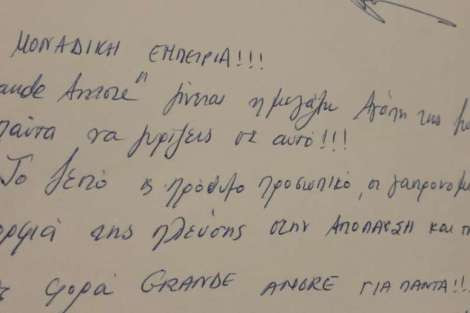 ΜΟΝΑΔΙΚΗ ΕΜΠΕΙΡΙΑ!!!
ande Amore" γίνεται η μεγάλη Αγάπη της μ
πάντα να γυρίζεις σε αυτό!!!
Το ζεστό & πρόθυμο προσωπικό, οι
ορφιά της πλεύσης στην ΑΠΟΛΑΥΣΗ και π
φορά GRANDE AMORE ΓΙΑ ΠΑΝΤΑ!!